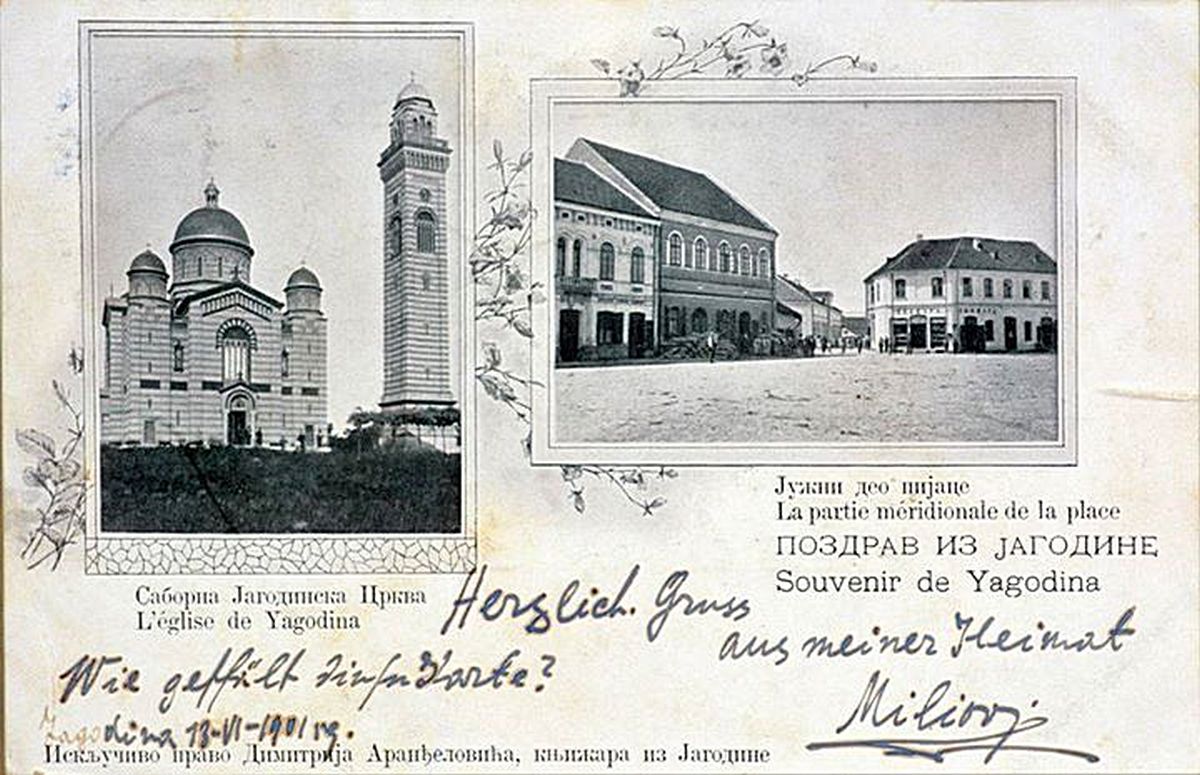 Јужни део пијаце
La partie méridionale de la place
ПОЗДРАВ ИЗ ЈАГОДИНЕ
Souvenir de Yagodina
Саборна Јагодинска Црква
L'église de Yagodina
Herzlich. Gruss
aus meiner Heimat
Wie gefällt Karte?
Miliovj
Jagodina 13-VI-1901
Искључиво право Димитрија Аранђеловића, књижара из Јагодине